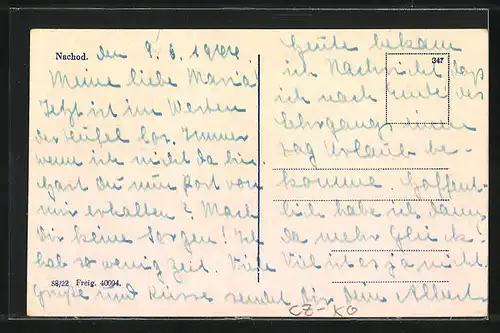 Nachod. den 9.6.1944
Meine liebe Maria!
Jetzt ist im Westen
der Teufel los. Immer
wenn ich nicht da bin.
Hast du nun Post von
mir erhalten? Mach
Dir keine Sorgen! Ich
hab so wenig Zeit. Viele
88/22 Freig. 40094.
Grüße und Küsse sendet Dir dein Albert
347
Heute bekam
ich Nachricht daß
ich nach Ende des
Lehrgangs einen
Tag Urlaub be-
komme. Hoffent-
lich habe ich dann
da mehr Glück!
Viel ist es ja nicht.
CZ-KO